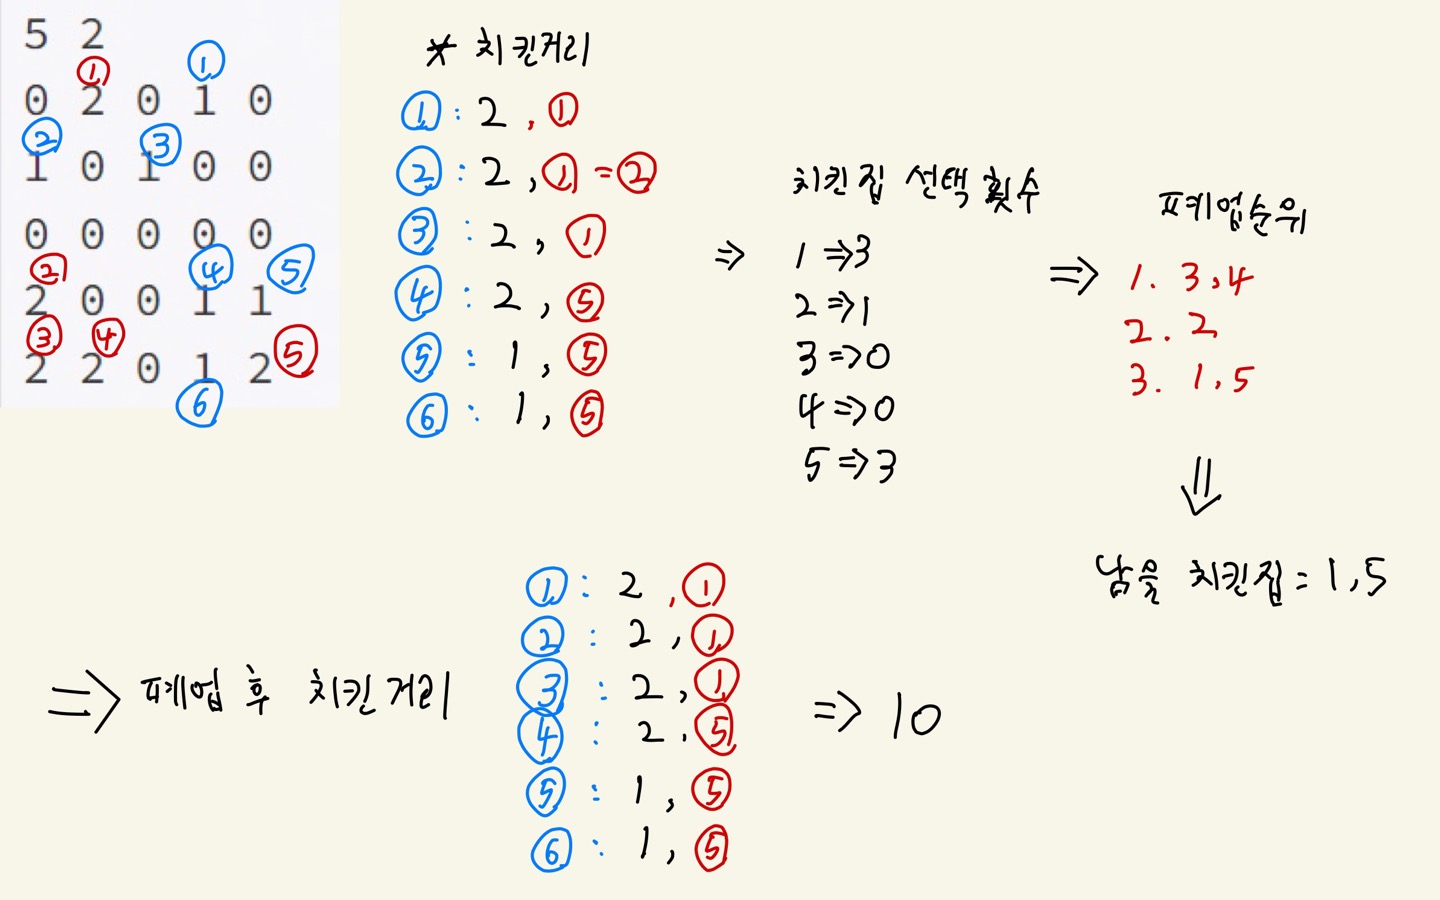 5 2
① ①
0 2 0 1 0
② ③
1 0 1 0 0
0 0 0 0 0
② ④ ⑤
2 0 0 1 1
③ ④ ⑤
2 2 0 1 2
⑥
* 치킨거리
① : 2 , ①
② : 2 , ① = ②
③ : 2 , ①
④ : 2 , ⑤
⑤ : 1 , ⑤
⑥ : 1 , ⑤
⇒
치킨집 선택 횟수
1 ⇒ 3
2 ⇒ 1
3 ⇒ 0
4 ⇒ 0
5 ⇒ 3
⇒
폐업순위
1. 3,4
2. 2
3. 1,5
⇓
남을 치킨집 = 1,5
⇒ 폐업 후 치킨거리
① : 2 , ①
② : 2 , ①
③ : 2 , ①
④ : 2 , ⑤
⑤ : 1 , ⑤
⑥ : 1 , ⑤
⇒ 10